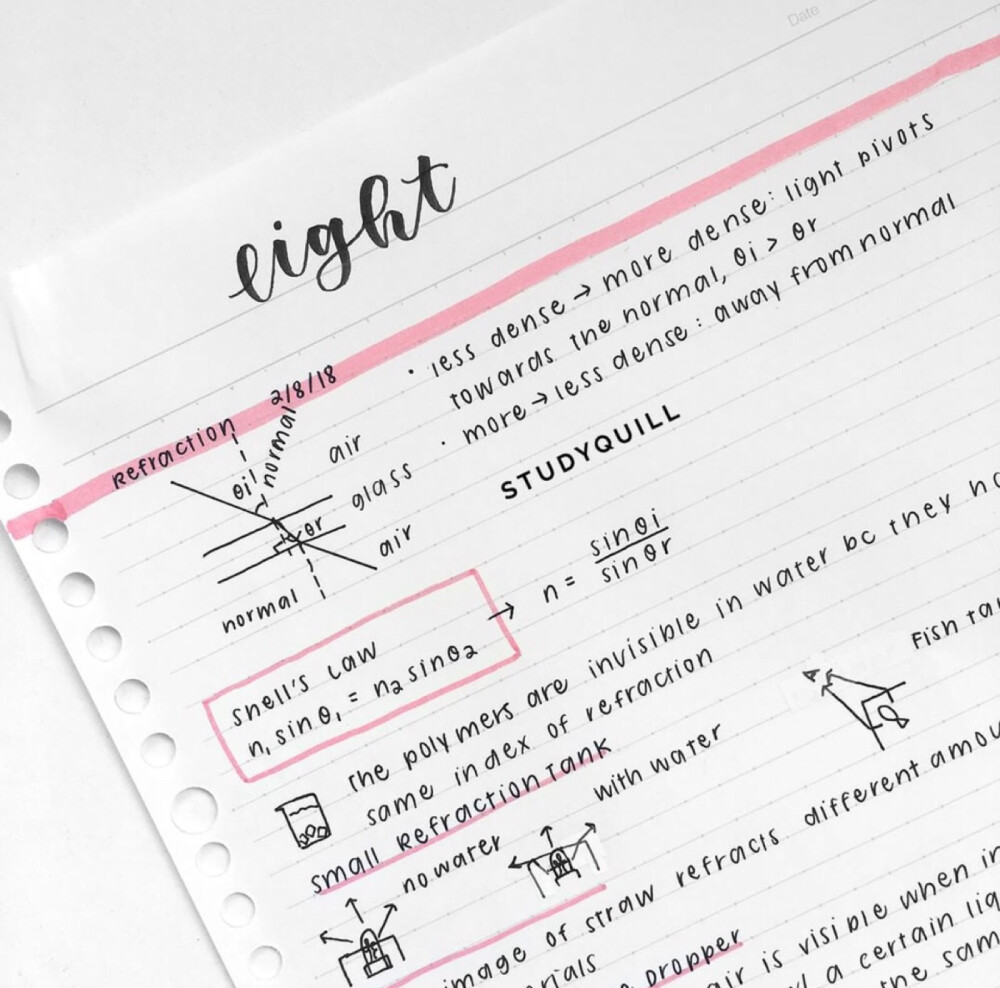 Date
light
Refraction 2/8/18
• less dense → more dense: light pivots
towards the normal, θi > θr
• more → less dense: away from normal
θi normal air
θr glass
air
normal
STUDYQUILL
snell's law
n₁ sinθ₁ = n₂ sinθ₂
→ n = sinθi / sinθr
the polymers are invisible in water bc they
same index of refraction
small Refraction Tank
no water
with water
Fish
image of straw refracts different
dropper
air is visible when
a certain
the